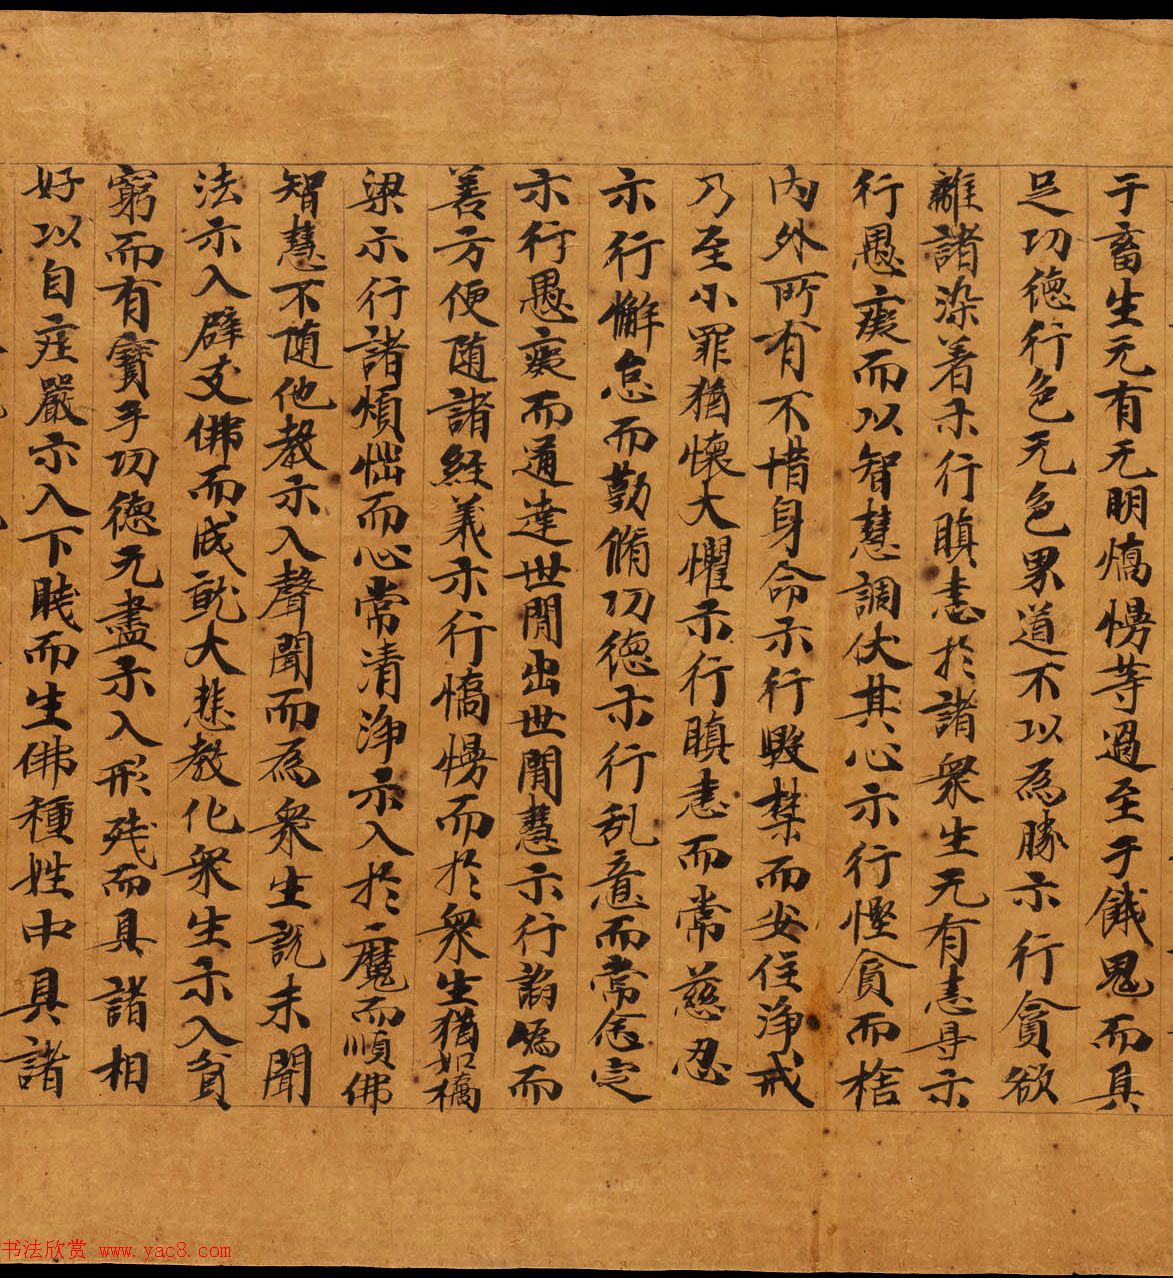 于畜生无有无明憍慢等過至于餓鬼而具
足功徳行色无色界道不以為勝示行貪欲
離諸染着示行瞋恚於諸衆生无有恚㝵示
行愚癡而以智慧調伏其心示行慳貪而捨
内外所有不惜身命示行毀禁而安住淨戒
乃至小罪猶懷大懼示行瞋恚而常慈忍
示行懈怠而勤脩功徳示行乱意而常念定
示行愚癡而通達世間出世間慧示行諂偽而
善方便随諸經義示行憍慢而於衆生猶如橋
梁示行諸煩惱而心常清淨示入於魔而順佛
智慧不随他教示入聲聞而為衆生說未聞
法示入辟支佛而成就大悲教化衆生示入貧
窮而有寶手功徳无盡示入形残而具諸相
好以自莊嚴示入下賤而生佛種姓中具諸
书法欣赏 www.yac8.com